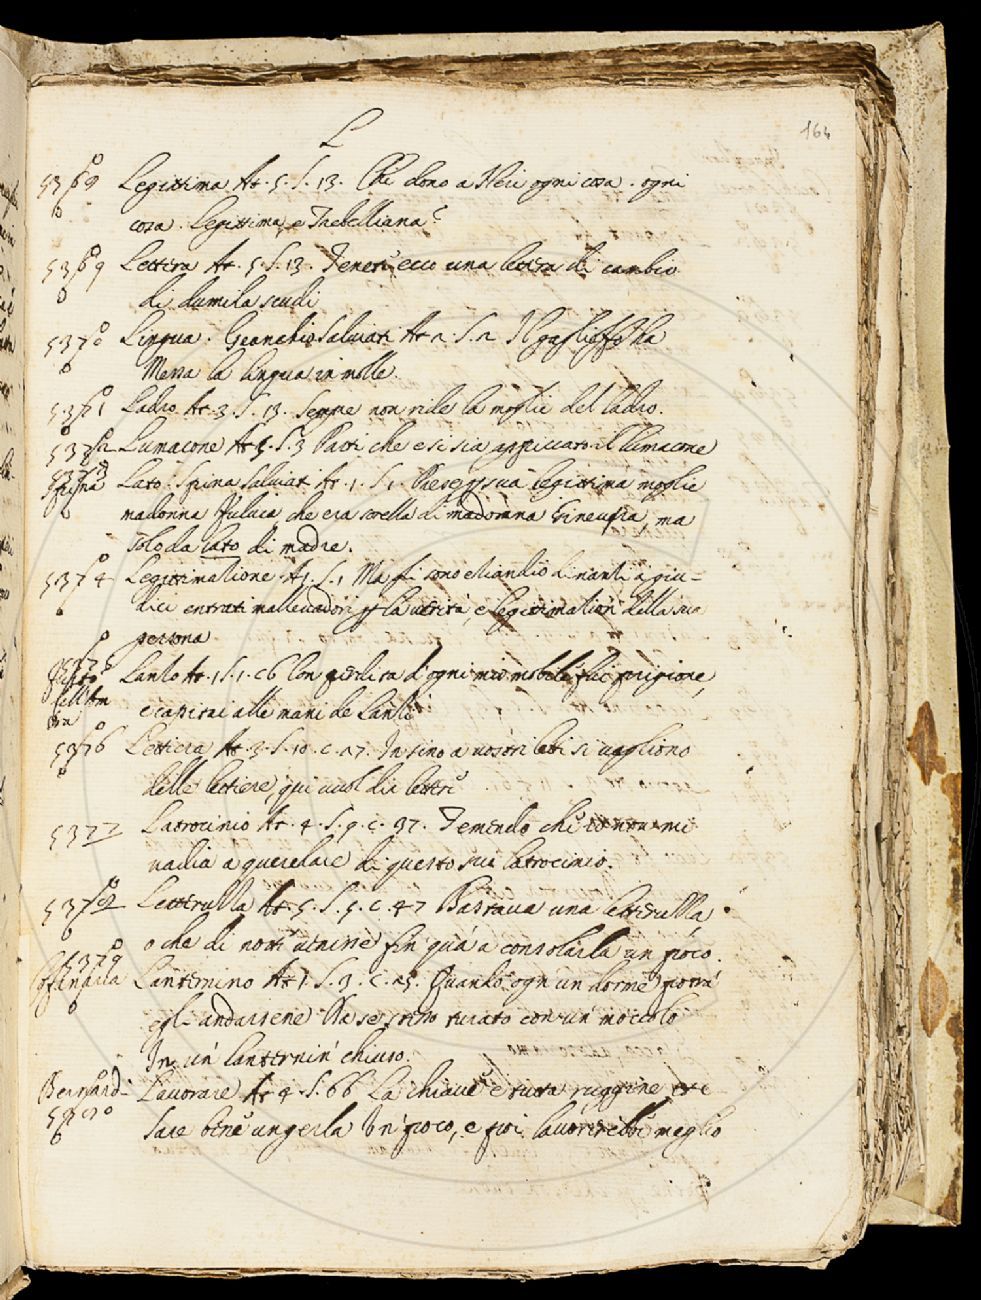 164
L
5369 Legittima At. 5. S. 13. Chi dono a Neri ogni cosa. ogni
cosa. Legittima, e Trebelliana?
5369 Lettera At. 5. S. 13. Tenete ecco una lettera di cambio
di dumila scudi
5370 Lingua. Granchio Salviati At 2. S. 2 Il gaglioffo ha
Messa la lingua in molle.
5371 Ladro. At. 3. S. 13. Sempre non ride la moglie del ladro.
5372 Lumacone At 5. S. 3 Parti che e si sia appiccato il lumacone
5373 Spina Lato. Spina Salviati At. 1. S. 1. sua legittima moglie
madonna Fulvia che era sorella di madonna Ginevra, ma
solo da lato di madre.
5374 Legittimatione. At. 1. S. 1 Ma si sono etiandio dinanti a giu-
dici entrati mallevadori p la verità, e legittimation della sua
persona
5375 Lanzo At. 1 S. 1. C6 Con perdita d'ogni mio mobile fui prigione,
e capitai alle mani de Lanzi
5376 Lettiera At. 3. S. 10. C. 27. Insino a vostri letti si vogliono
delle lettiere, qui vuol dir letteri
5377 Latrocinio At. 4. S. 9. C. 37. Temendo che tu non mi
vadia a querelare di questo suo latrocinio.
Letterulla At. 5. S. 5. C. 47 Bastava una letterulla
o che di notte venisse fin quà a consolarla un poco.
5379 Lanternino At 1. S. 3. C. 25. Quando ogn'un dorme potrà
egl' andarsene turato con un moccolo
In un' lanternin' chiuso.
Bernardi- Lavorare At 4. S. 66 La chiave è tutta ruggine
Sare bene ungerla un poco, e poi lavorerebbe meglio